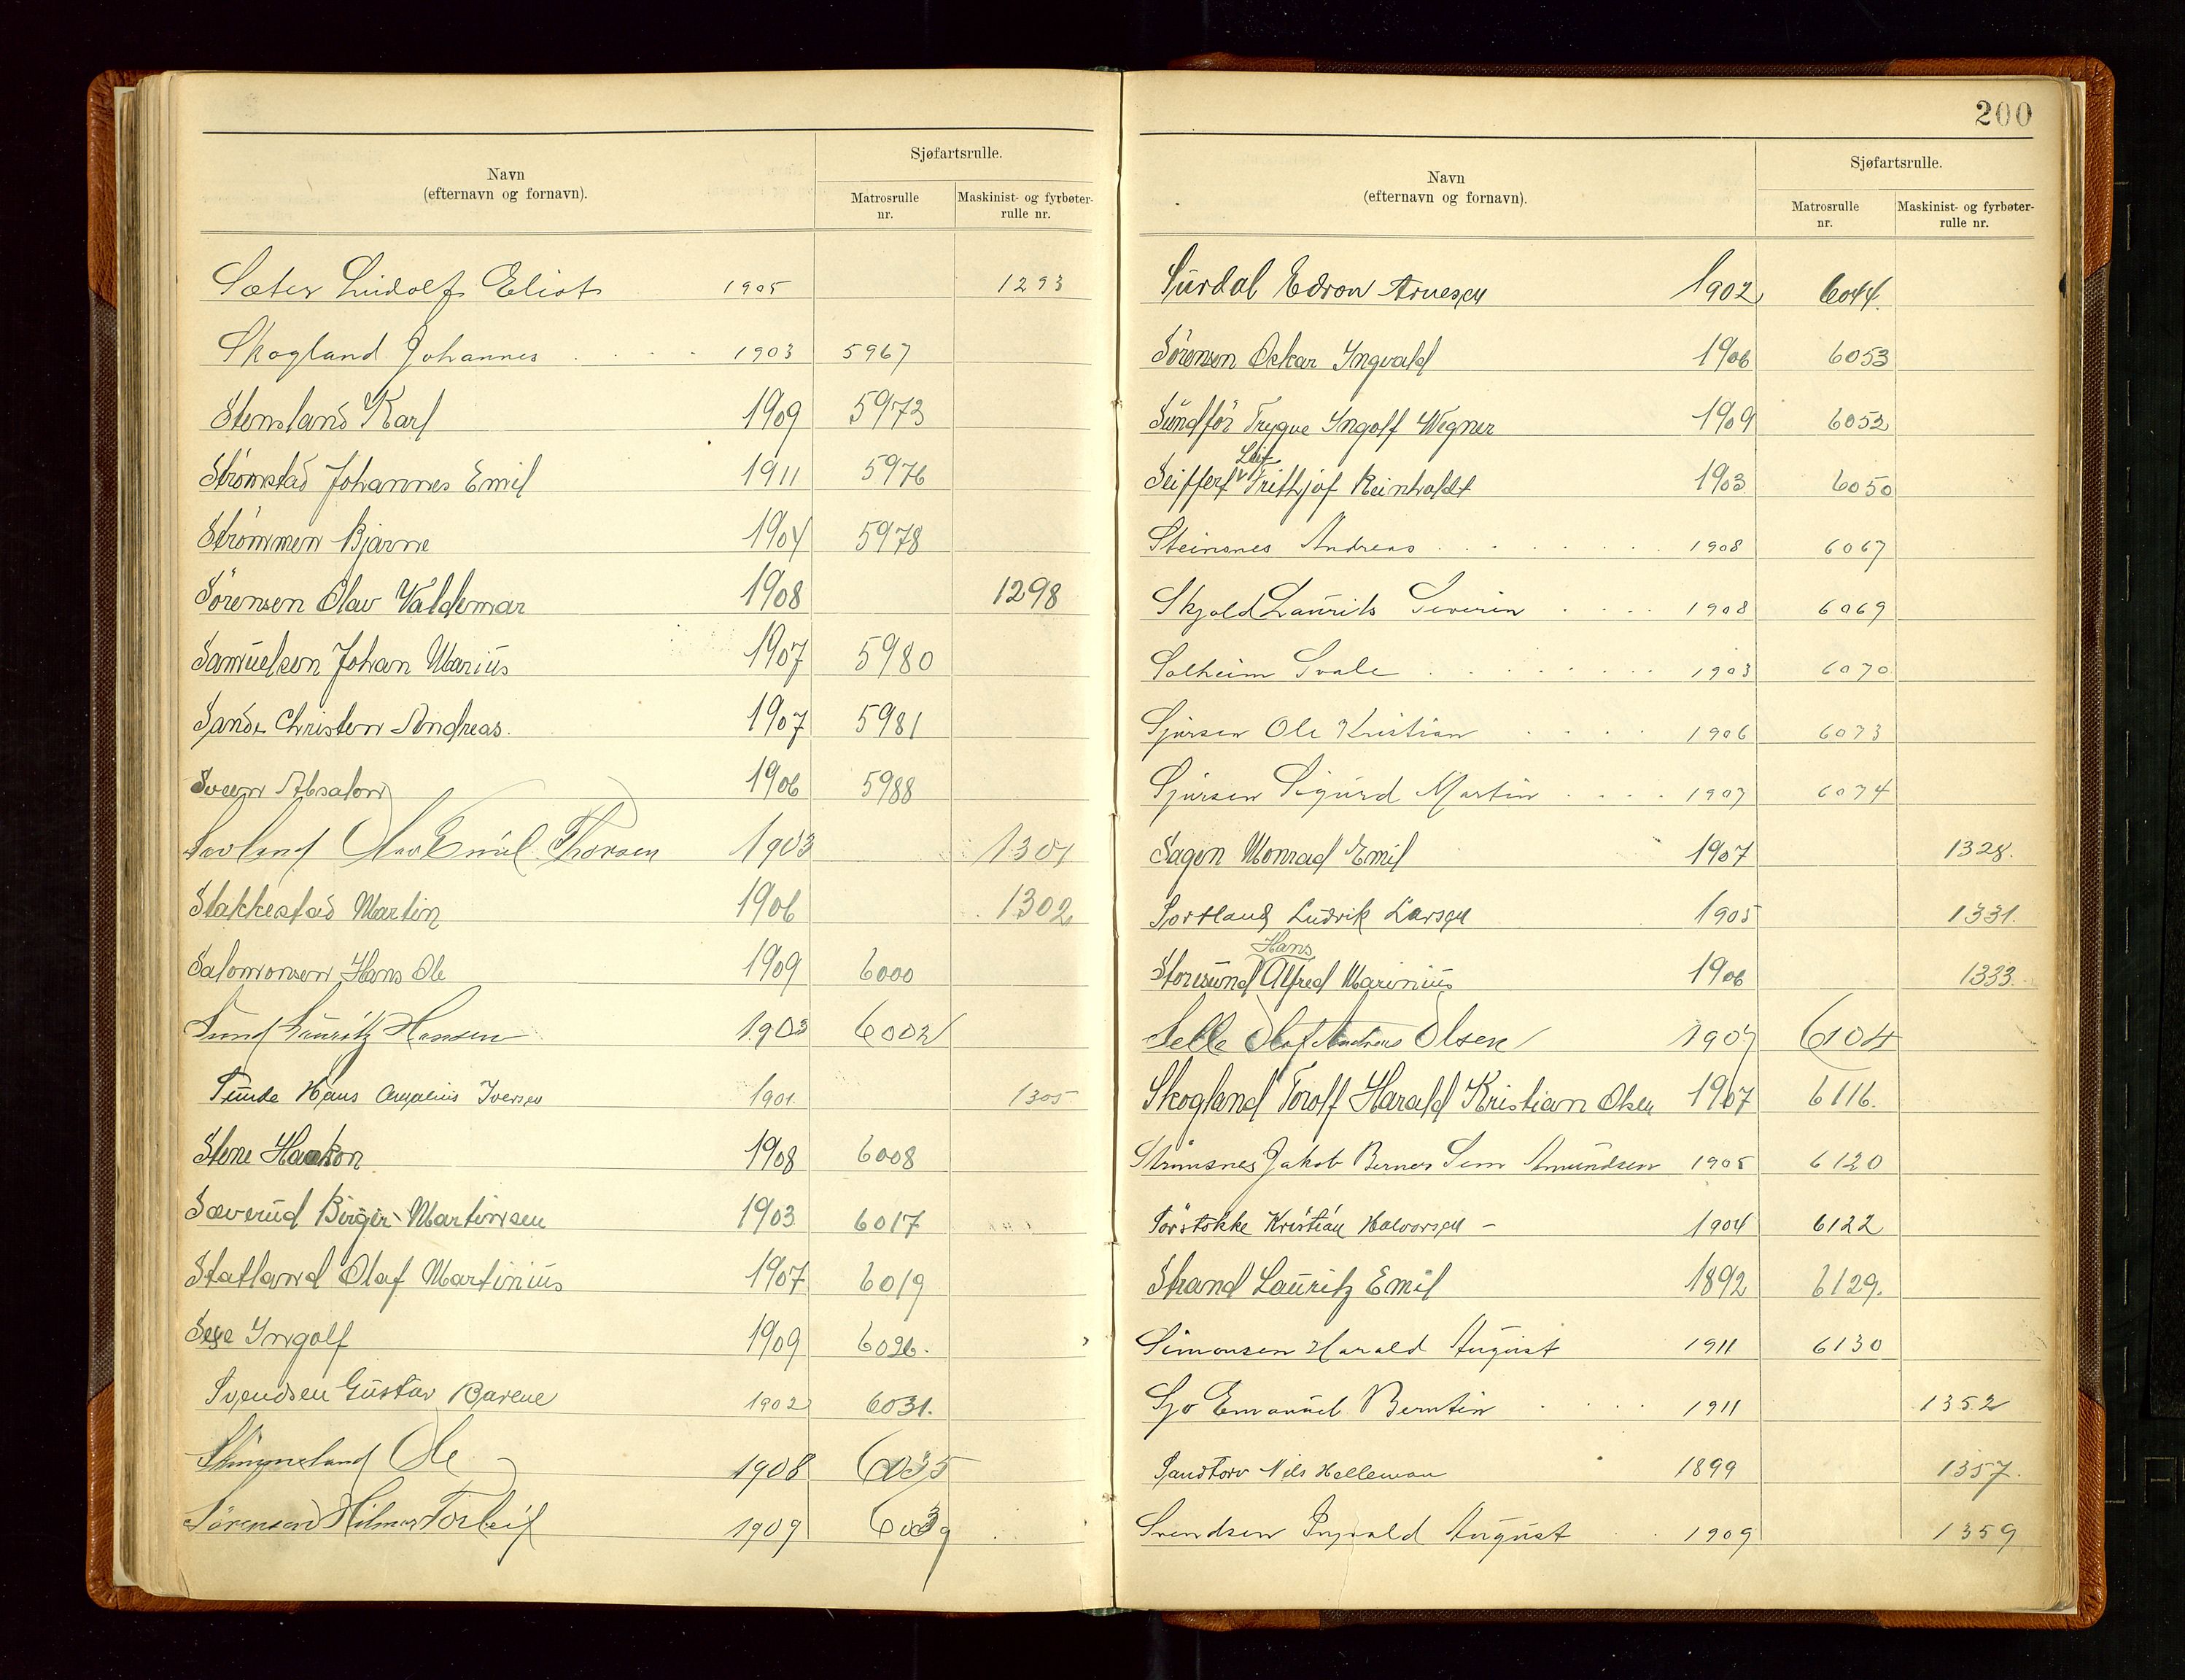 Navn
(efternavn og fornavn).
Sjøfartsrulle.
Matrosrulle nr.
Maskinist- og fyrbøter-rulle nr.
Sæter Lindolf Eliot 1905 1293
Skogland Johannes . . . . 1903 5967
Stensland Karl 1909 5973
Strömstad Johannes Emil 1911 5976
Strömmen Bjarne 1904 5978
Sörensen Olav Valdemar 1908 1298
Samuelsen Johan Marius 1907 5980
Sande Christen Andreas. 1907 5981
Sveen Absalon 1906 5988
Sævland Olav Emil Thorsen 1903 1301
Stakkestad Martin 1906 1302
Salomonsen Hans Ole 1909 6000
Sund Lauritz Hansen 1903 6002
Sunde Hans Iversen 1901. 1305
Stene Haakon 1908 6008
Sæverud Birger Martinsen 1903 6017
Statland Olaf Martinius 1907 6019
Sexe Ingolf 1909 6026.
Svendsen Gustav Barene 1902 6031.
Skimmeland Ole 1908 6035
Sørensen Hilmar Torleif 1909 6039
200
Navn
(efternavn og fornavn).
Sjøfartsrulle.
Matrosrulle nr.
Maskinist- og fyrbøter-rulle nr.
Surdal Edvon Arnesen 1902 6044.
Sörensen Oskar Ingvald 1906 6053
Sundför Trygve Ingolf Wegner 1909 6052
Leif
Seiffert Frithjof Reinholdt 1903 6050
Steinsnes Andreas . . . . . . . . 1908 6067
Skjold Laurits Severin . . . . 1908 6069
Solheim Svale . . . . . . . . 1903 6070
Sjursen Ole Kristian . . . . 1906 6073
Sjursen Sigurd Martin . . . . 1907 6074
Sagen Monrad Emil 1907 1328.
Sortland Ludvik Larsen 1905 1331.
Hans
Storesund Alfred Marinius 1906 1333.
Selle Olaf Andreas Olsen 1907 6104
Skogland Torolf Harald Kristian Olsen 1907 6116.
Strømsnes Jakob Berner Sem Amundsen 1905 6120
Sörstokke Kristian Halvorsen - 1904 6122
Strand Lauritz Emil 1892 6129.
Simonsen Harald August 1911 6130
Sjo Emanuel Berntin . . . . 1911 1352
Sandtorv Nils Helleman 1899 1357.
Svendsen Ingvald August . . 1909 1359